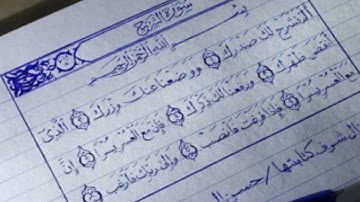 سورة الشرح
بسم الله الرحمن الرحيم
ألم نشرح لك صدرك ۝ ووضعنا عنك وزرك ۝ الذي
أنقض ظهرك ۝ ورفعنا لك ذكرك ۝ فإن مع العسر يسرا ۝ إن
مع العسر يسرا ۝ فإذا فرغت فانصب ۝ وإلى ربك فارغب ۝
شرف كتابتها /